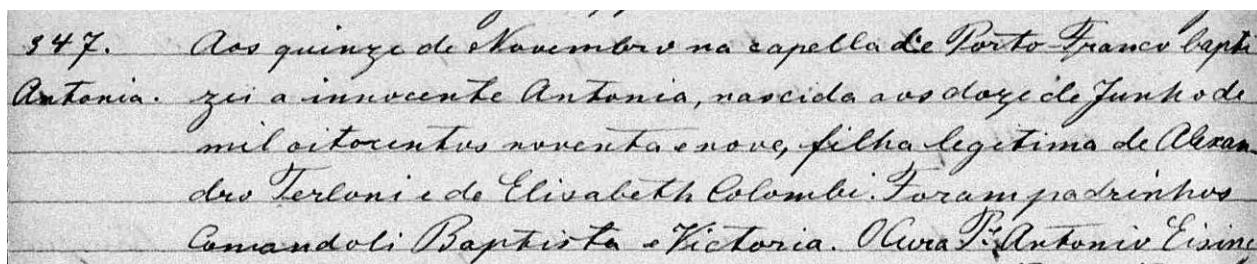 347. Aos quinze de Novembro na capella de Porto-Franco bapti
Antonia. zei a innocente Antonia, nascida aos doze de Junho de
mil oitocentos noventa e nove, filha legitima de Alexan-
dro Terloni e de Elisabeth Colombi. Foram padrinhos
Comandoli Baptista e Victoria. O Cura Pe. Antonio Eising